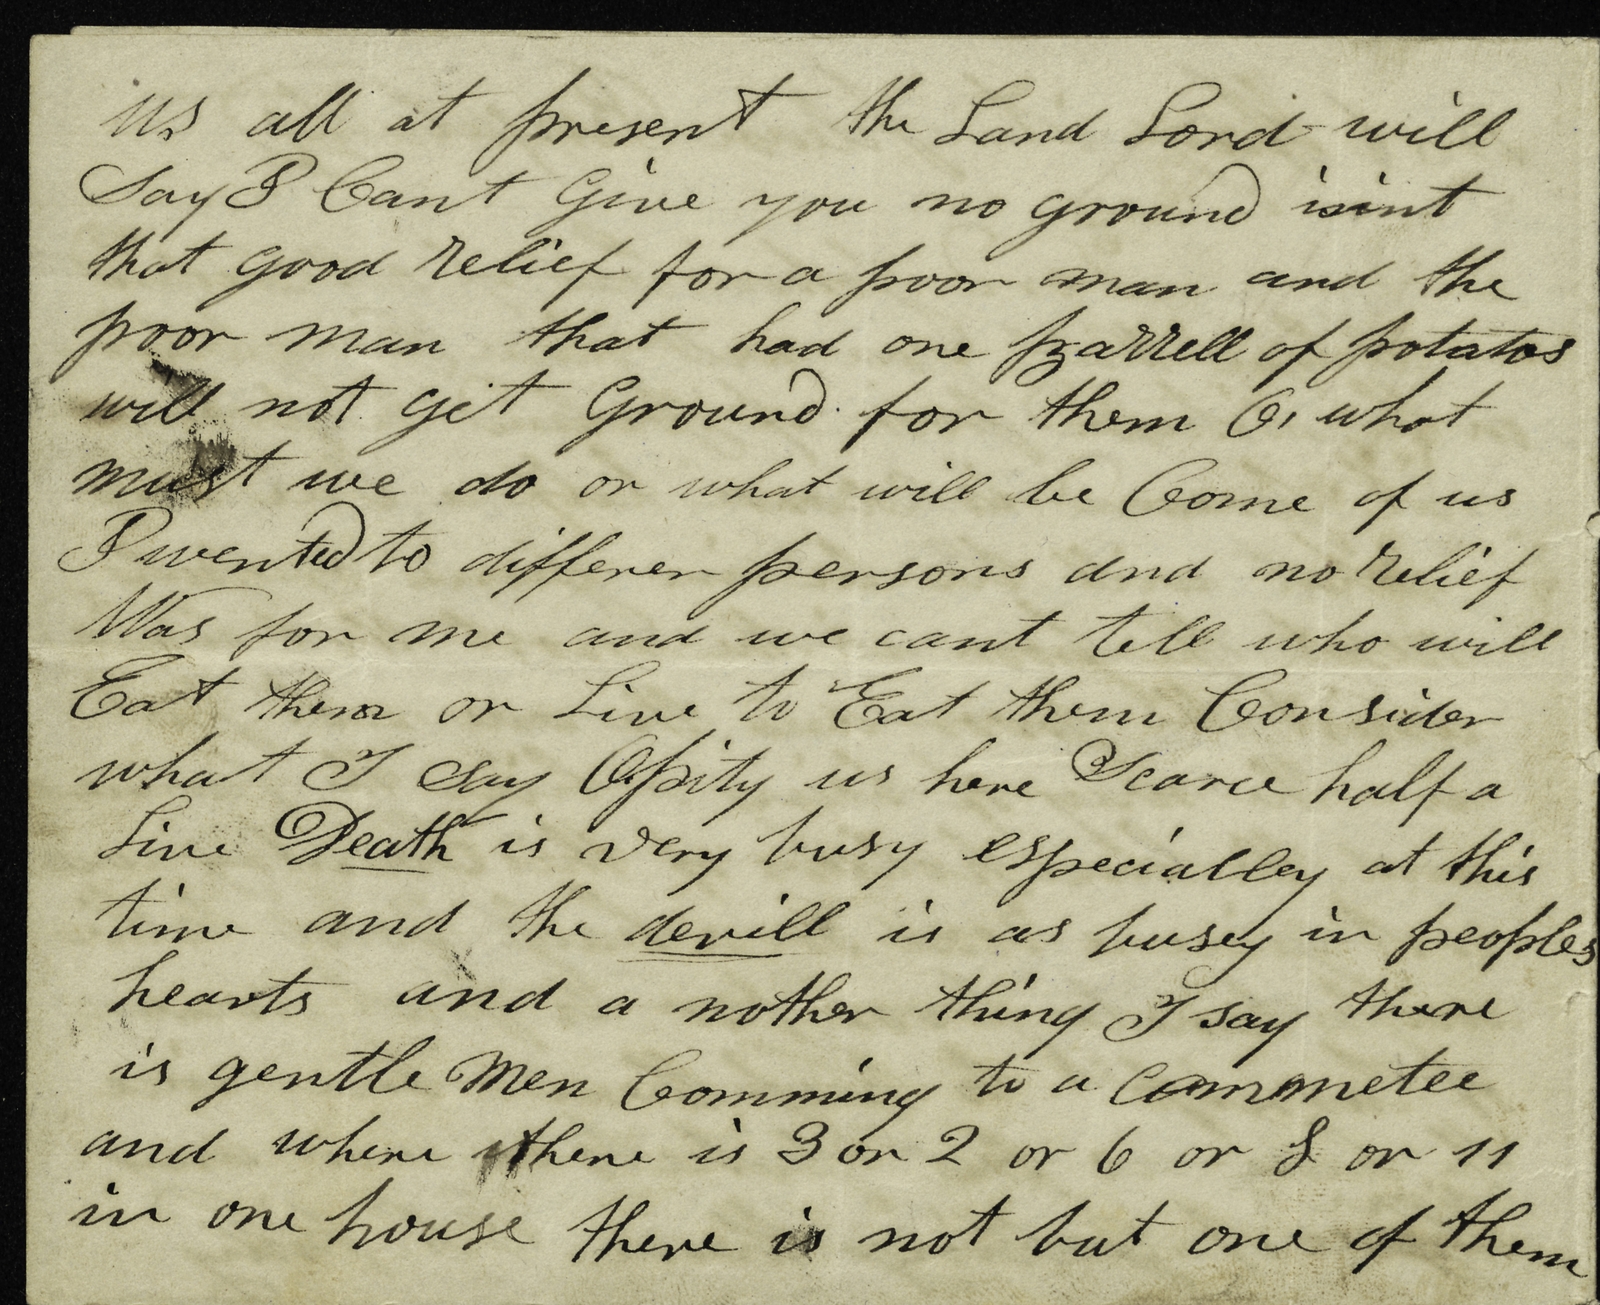 us all at present the Land Lord will
Say I Cant Give you no ground isint
that good relief for a poor man and the
poor man that had one barrell of potatos
will not git Ground for them O, what
must we do or what will be Come of us
I wented to differen persons and no relief
Was for me and we cant tell who will
Eat them or Live to Eat them Consider
what I say O pity us here Scarce half a
Live Death is very busy especialley at this
time and the devill is as busey in peoples
hearts and a nother thing I say there
is gentle Men Comming to a Commetee
and where there is 3 or 2 or 6 or 8 or 11
in one house there is not but one of them